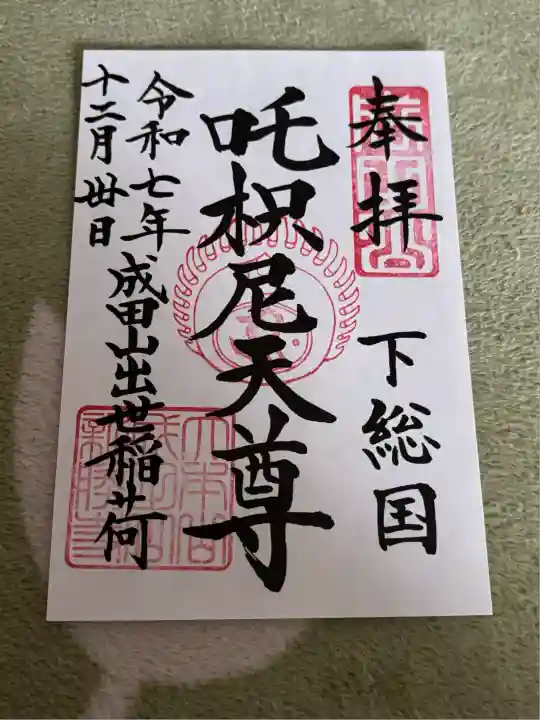 奉拝
下総国
吒枳尼天尊
成田山出世稲荷
令和七年
十二月卅日